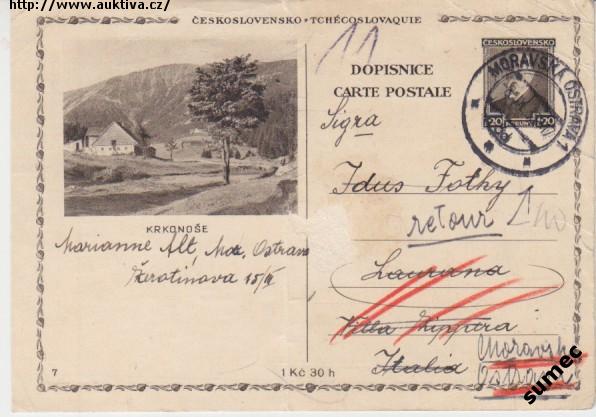 http://www.auktiva.cz/
ČESKOSLOVENSKO • TCHÉCOSLOVAQUIE
11
DOPISNICE
CARTE POSTALE
ČESKOSLOVENSKO
1·20 KORUNY 1·20
MORAVSKÁ OSTRAVA 1
KRKONOŠE
Marianne Alt, Mor. Ostrava
Žerotínova 15/II
Sigra
Idus Fothy
retour
Laurana
Villa Zippera
Italia
Moravsk
Ostrava
7
1 Kč 30 h
sumec